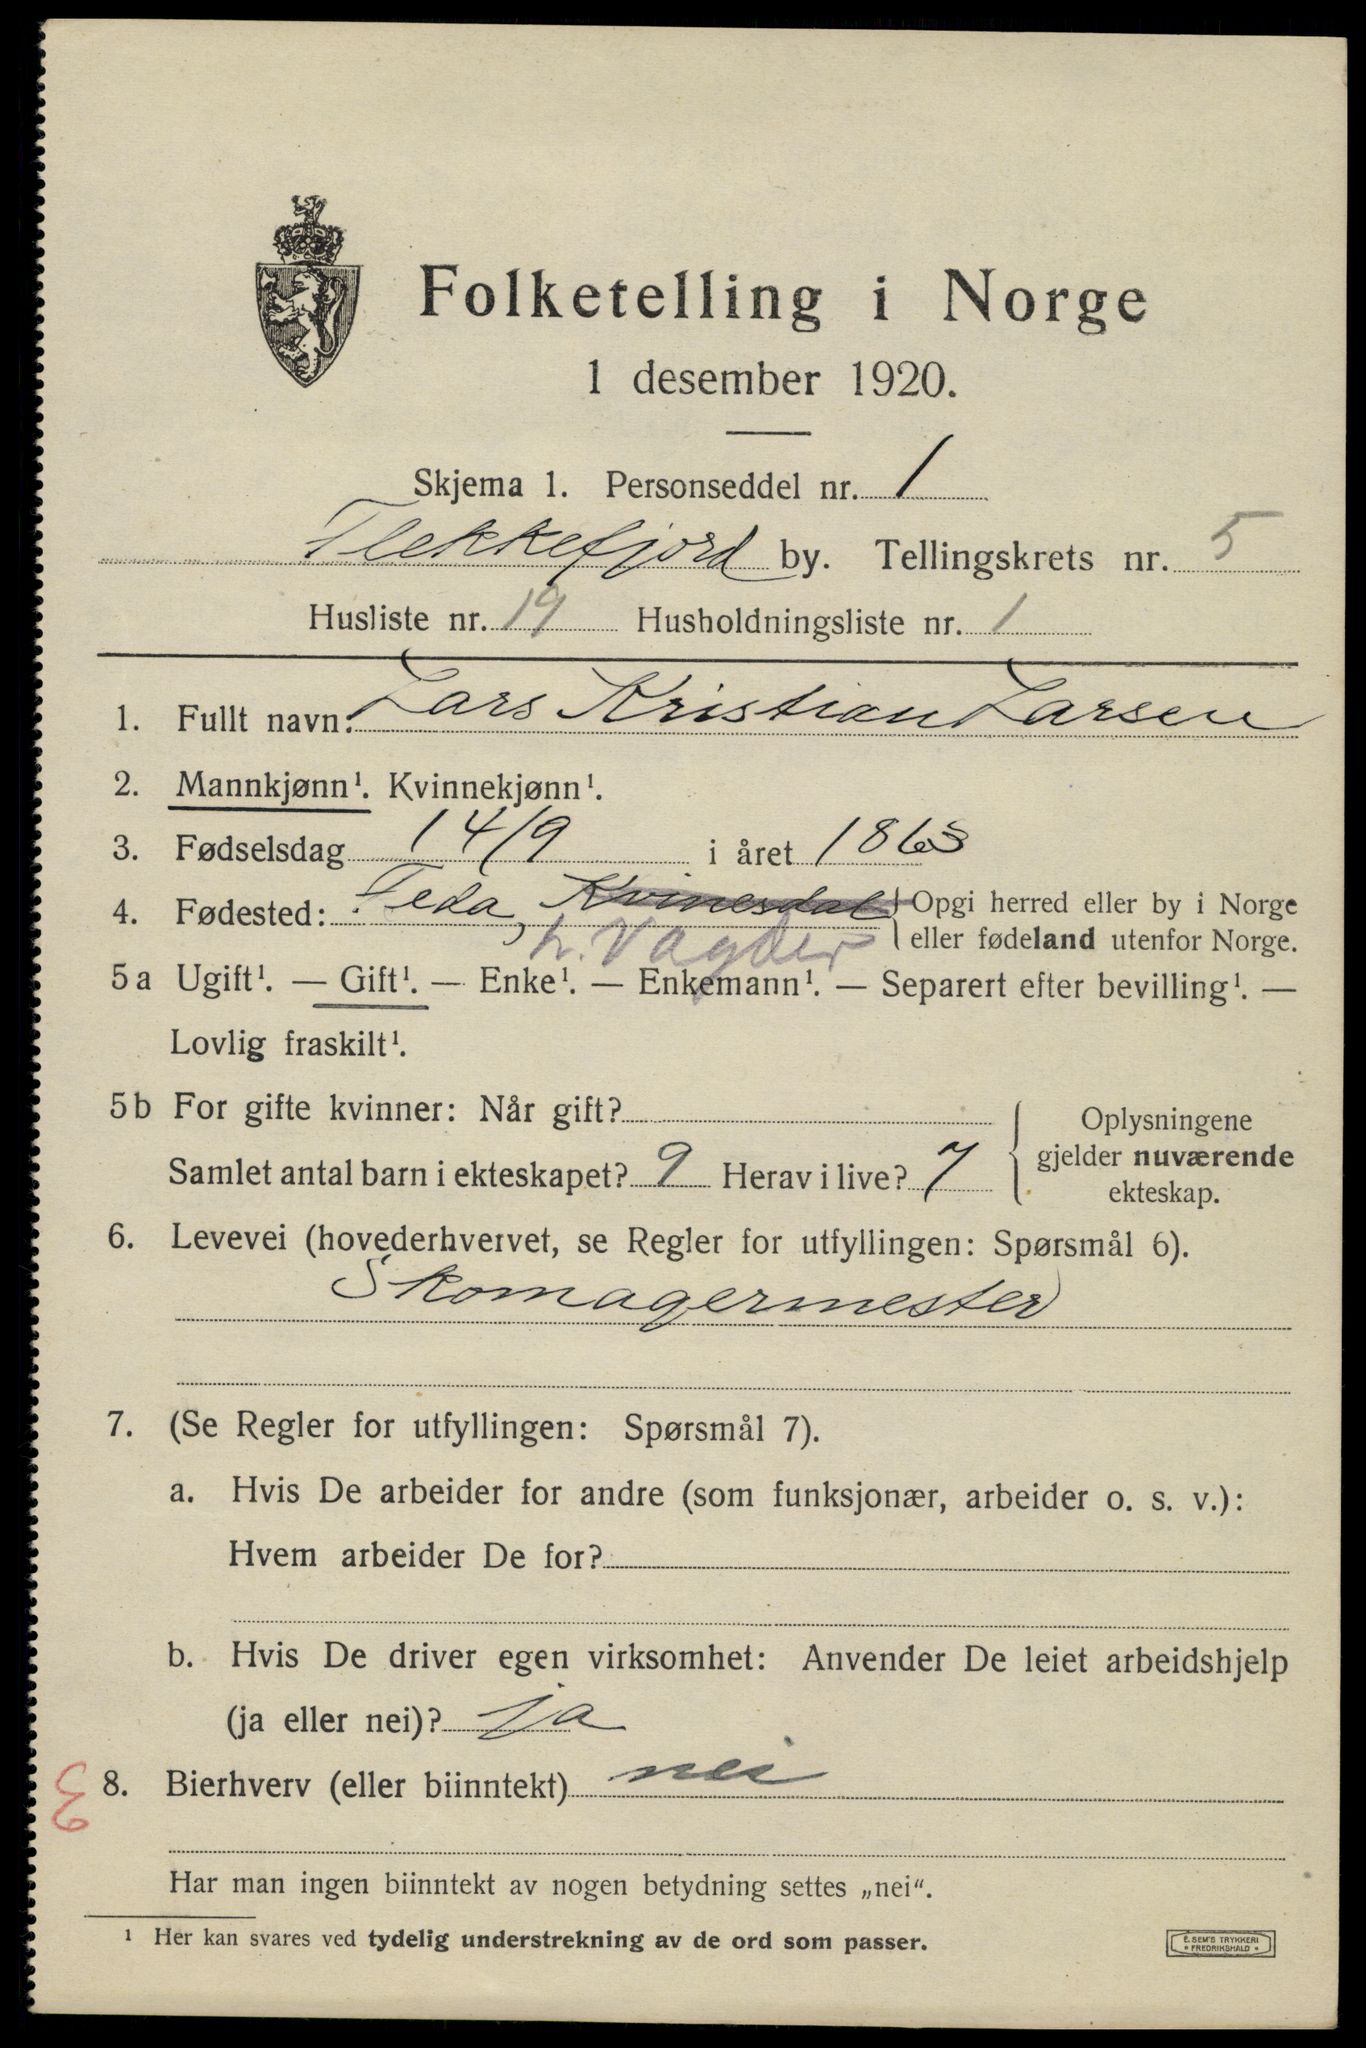 Folketelling i Norge
1 desember 1920.
Skjema 1. Personseddel nr. 1
Flekkefjord by. Tellingskrets nr. 5
Husliste nr. 19 Husholdningsliste nr. 1
1. Fullt navn: Lars Kristian Larsen
2. Mannkjønn¹. Kvinnekjønn¹.
3. Fødselsdag 14/9 i året 1863
4. Fødested: Feda, Kvinesdal Opgi herred eller by i Norge
eller fødeland utenfor Norge.
5a Ugift¹. — Gift¹. — Enke¹. — Enkemann¹. — Separert efter bevilling¹. —
Lovlig fraskilt¹.
5b For gifte kvinner: Når gift?
Samlet antal barn i ekteskapet? 9 Herav i live? 7
Oplysningene
gjelder nuværende
ekteskap.
6. Levevei (hovederhvervet, se Regler for utfyllingen: Spørsmål 6).
Skomagermester
7. (Se Regler for utfyllingen: Spørsmål 7).
a. Hvis De arbeider for andre (som funksjonær, arbeider o. s. v.):
Hvem arbeider De for?
b. Hvis De driver egen virksomhet: Anvender De leiet arbeidshjelp
(ja eller nei)? ja
8. Bierhverv (eller biinntekt) nei
Har man ingen biinntekt av nogen betydning settes „nei“.
¹ Her kan svares ved tydelig understrekning av de ord som passer.
E. SEM'S TRYKKERI
* FREDRIKSHALD *